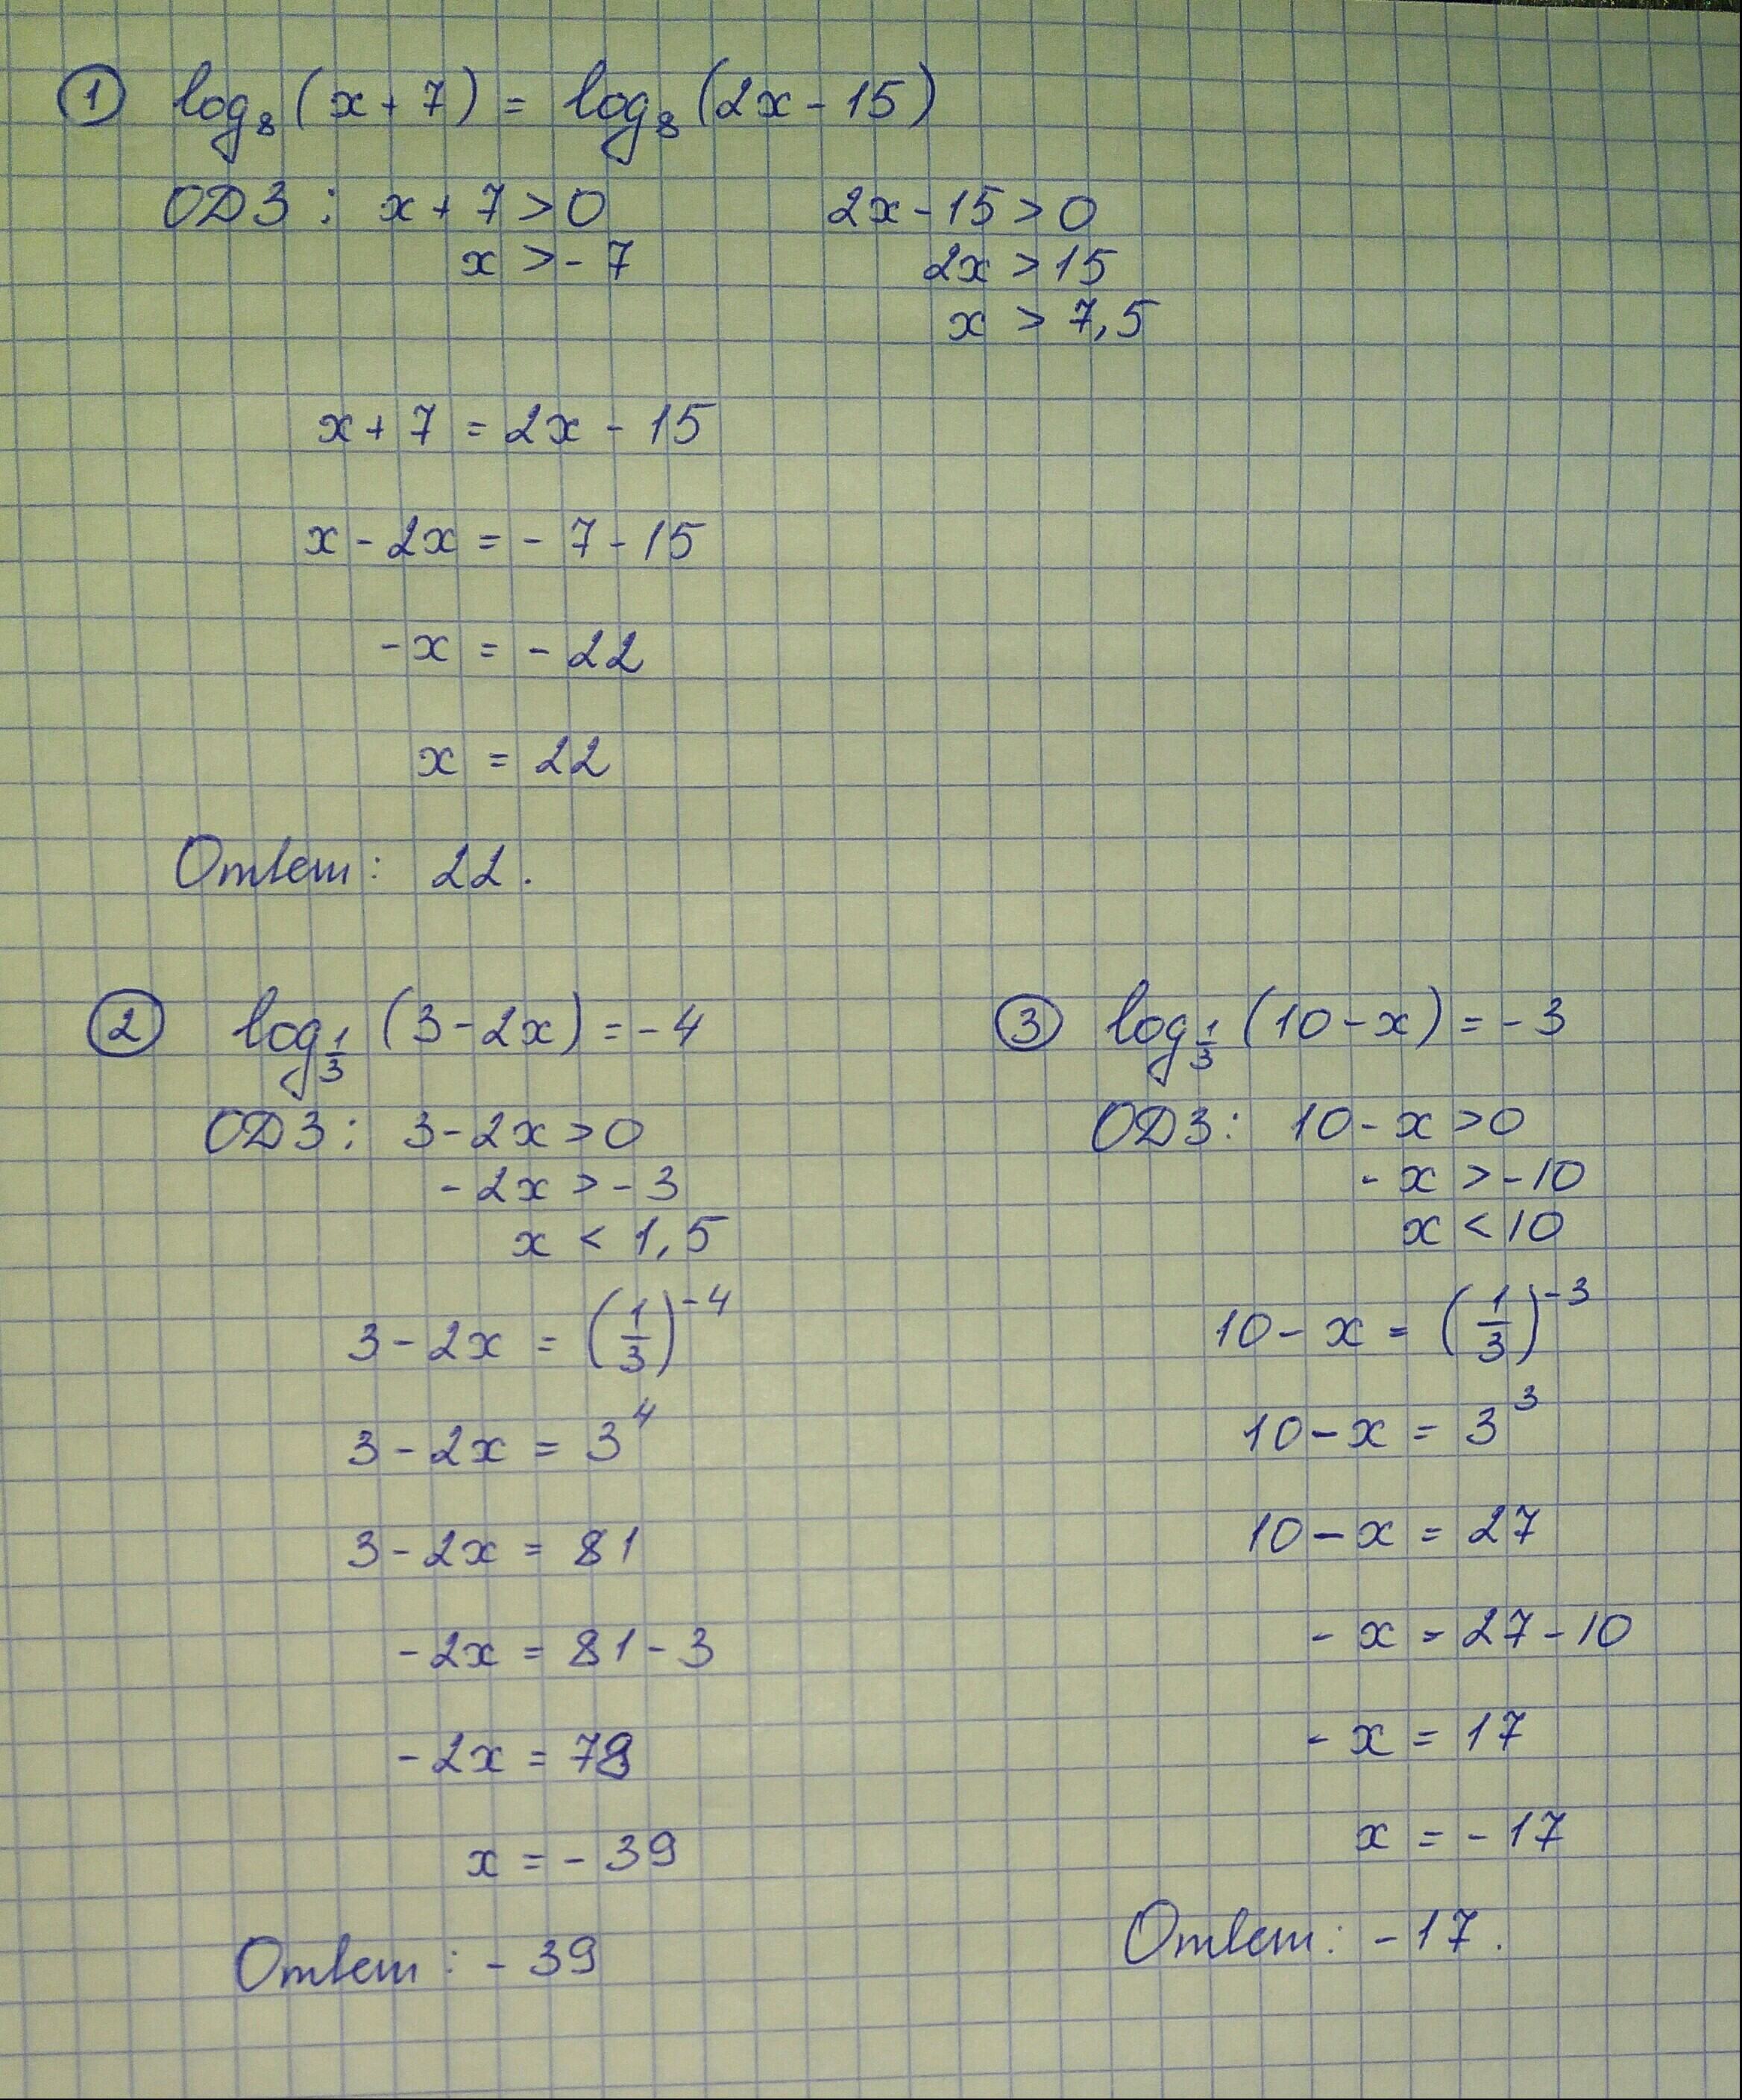 ① log₈(x+7) = log₈(2x-15)
ОДЗ: x+7>0
x>-7
2x-15>0
2x>15
x>7,5
x+7=2x-15
x-2x=-7-15
-x=-22
x=22
Ответ: 22.
② log_{1/3}(3-2x)=-4
ОДЗ: 3-2x>0
-2x>-3
x<1,5
3-2x=(1/3)⁻⁴
3-2x=3⁴
3-2x=81
-2x=81-3
-2x=78
x=-39
Ответ: -39
③ log_{1/3}(10-x)=-3
ОДЗ: 10-x>0
-x>-10
x<10
10-x=(1/3)⁻³
10-x=3³
10-x=27
-x=27-10
-x=17
x=-17
Ответ: -17.